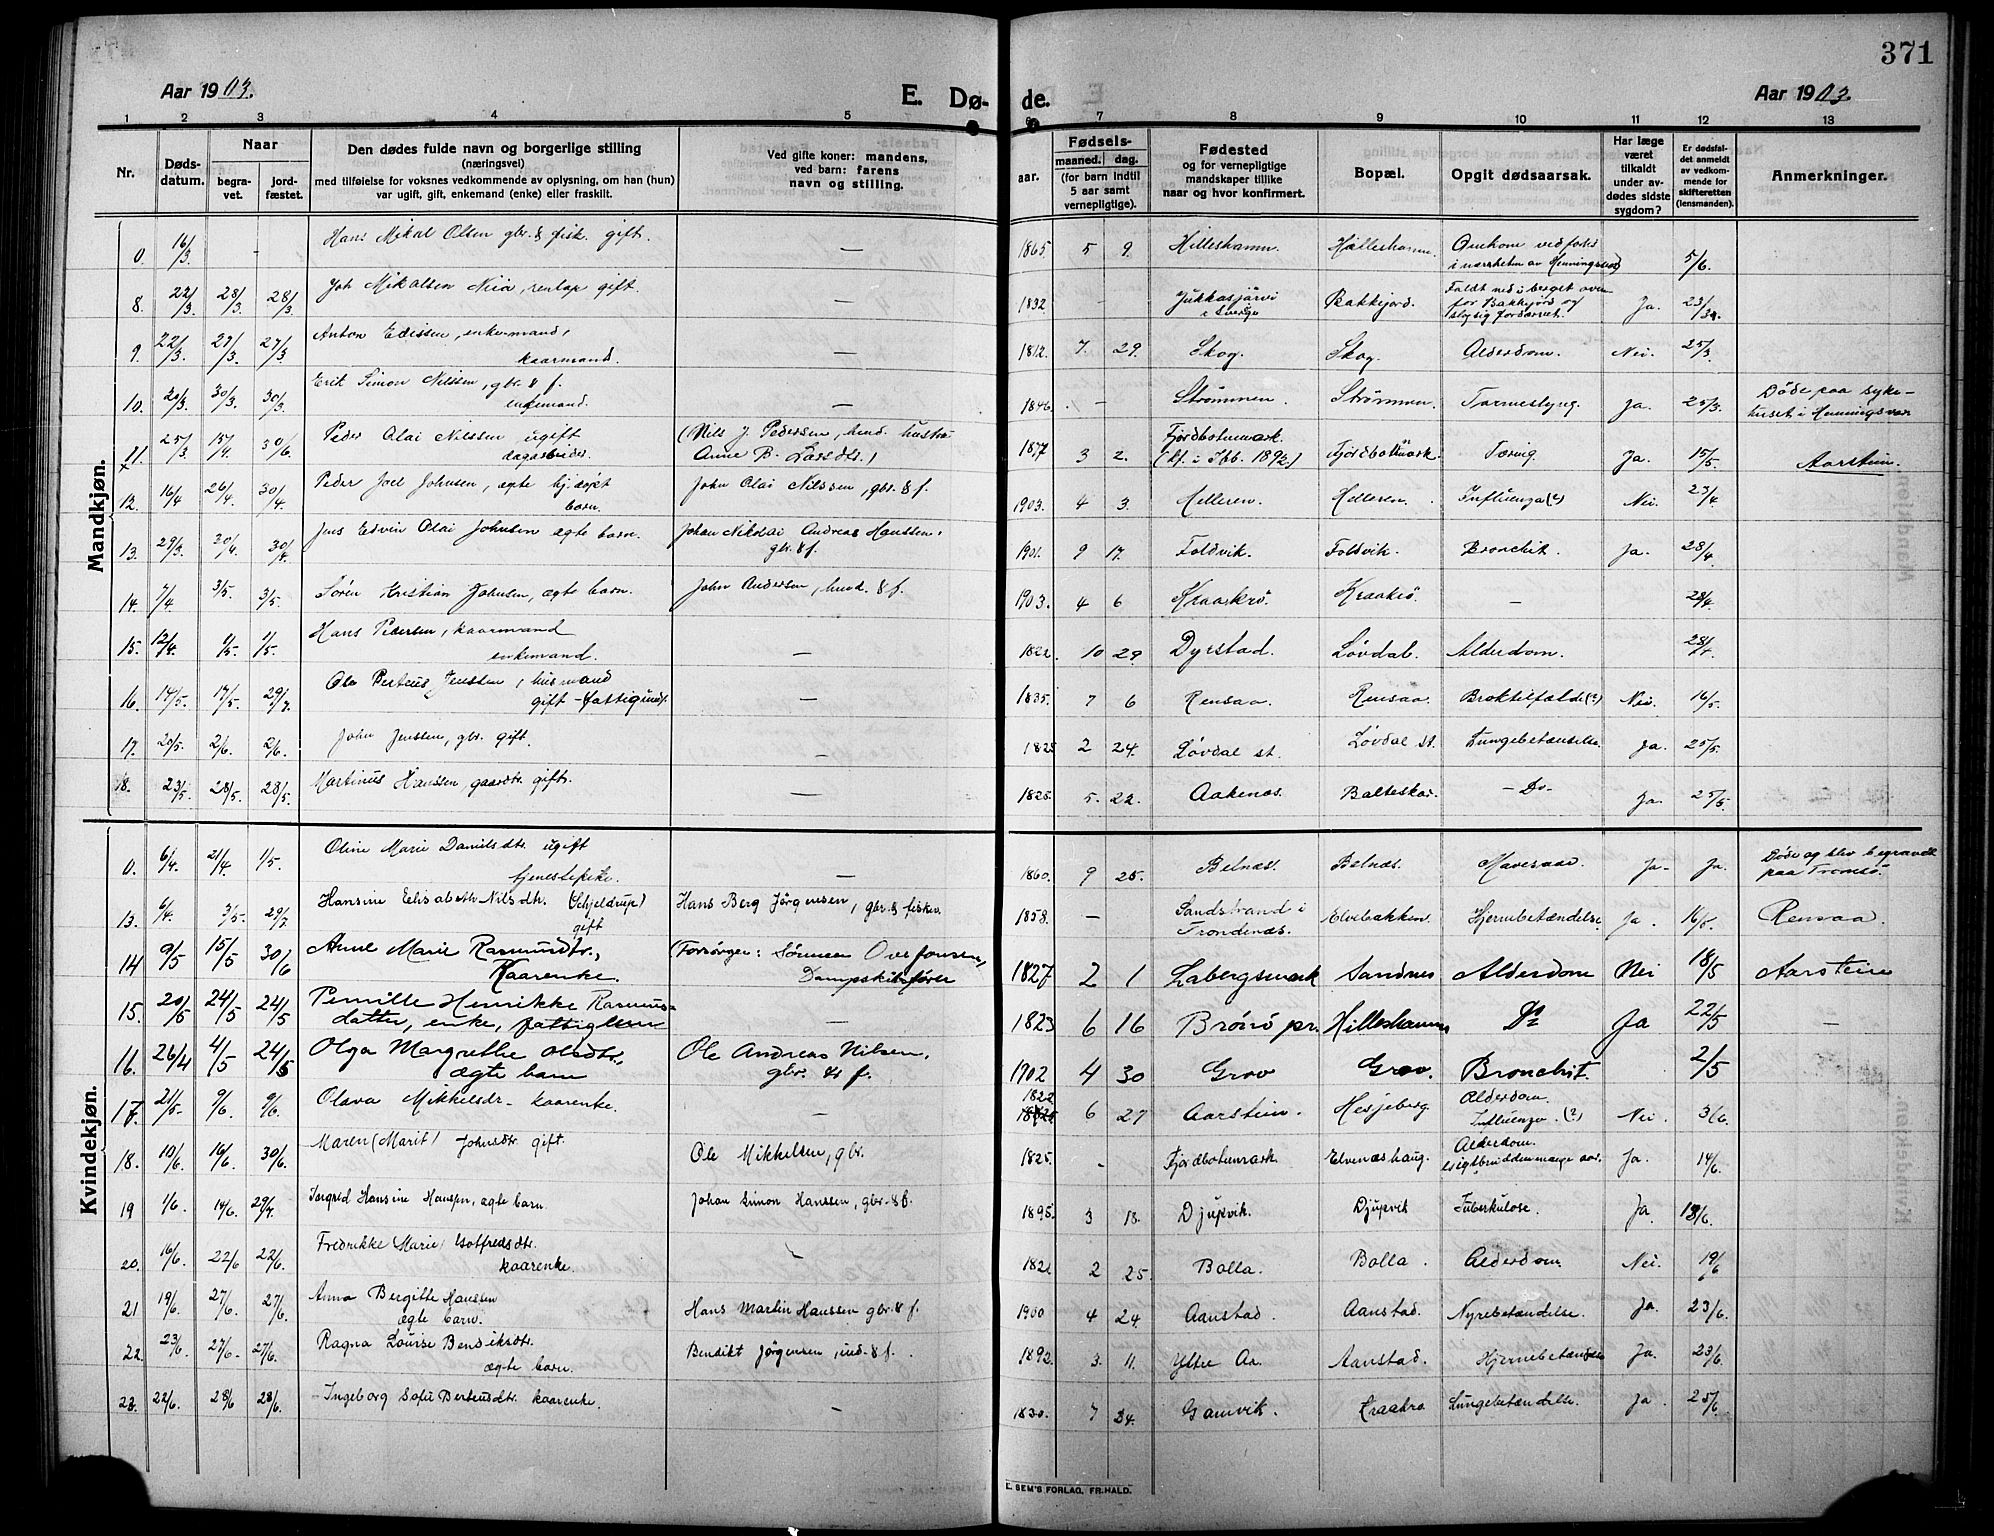 371
Aar 1903.
E. Døde.
Aar 1903.
1 2 3 4 5 6 7 8 9 10 11 12 13
Nr.
Døds-datum.
Naar
begra-vet.
jord-fæstet.
Den dødes fulde navn og borgerlige stilling
(næringsvei)
med tilføielse for voksnes vedkommende av oplysning, om han (hun)
var ugift, gift, enkemand (enke) eller fraskilt.
Ved gifte koner: mandens,
ved barn: farens
navn og stilling.
Fødsels-
aar.
maaned. dag.
(for barn indtil
5 aar samt
vernepligtige).
Fødested
og for vernepligtige
mandskaper tillike
naar og hvor konfirmert.
Bopæl.
Opgit dødsaarsak.
Har læge
været
tilkaldt
under av-
dødes sidste
sygdom?
Er dødsfal-
det anmeldt
av vedkom-
mende for
skifteretten
(lensmanden).
Anmerkninger.
Mandkjøn.
0. 16/3 - Hans Mikal Olsen gbr. & fisk. gift. — 1865. 5 9. Hilleshamn. Hilleshamn. Omkom ved forlis i nærheten av Henningsvær 5/6.
8. 22/3 28/3 28/3 Joh Mikalsen Nia, renlap gift. — 1832 - Jukkasjärvi i Sverige Bakkejord. Faldt ned i berget oven for Bakkejord og Ja. 23/3
9. 22/3 27/3 27/3 Anton Edissen, enkemand, kaarmand. — 1812. 7. 29. Skog. Skog. Alderdom. Nei. 25/3
10. 20/3. 30/3. 30/3 Erik Simon Nilssen, gbr. & f. enkemand. — 1846. — Strømmen. Strømmen. Tarmeslyng. Ja. 25/3. Døde paa syke-huset i Henningsvær
11. 25/3 15/4 30/6. Peder Olai Nilssen ugift (Nils J. Pedersen, hmd. hustru Anne B. Larsdtr.) 1877 3 2. Fjordbotnmark. (kf. i Ibb. 1892.) Fjordbotnmark. Tæring. Ja. 15/5. Aarstein.
12. 16/4 26/4. 30/4 Peder Joel Johnsen, ægte hj.døpt barn. John Olai Nilssen, gbr. & f. 1903. 4 3. Helleren. Helleren. Influenza (?) Nei. 23/4
13. 29/3. 20/4. 30/4. Jens Edvin Olai Johnsen ægte barn. Johan Nikolai Andreas Hanssen, gbr. & f. 1901. 9 17. Foldvik. Foldvik. Bronchit. Ja. 28/4
14. 7/4 3/5. 3/5. Sören Kristian Johnsen, ægte barn. John Andersen, hmd. & f. 1903. 4 6 Kraakrö. Kraakrö. — 28/4.
15. 12/4. 1/5. 1/5. Hans Pedersen, kaarmand enkemand. — 1822. 10 29 Dyrstad. Lövdal. Alderdom. 28/4.
16. 14/5. 17/5. 29/7. Ole Perteus Jenssen, husmand gift - fattigund. — 1835. 7 6 Rensaa. Rensaa. Broktilfælde (?) Nei. 16/5.
17. 20/5. 2/6. 2/6. John Jenssen, gbr. gift. — 1825 2 24. Lövdal st. Lövdal st. Lungebetændelse. Ja. 25/5.
18. 23/5. 28/5. 28/5. Martinus Hanssen, gaardbr. gift. — 1825. 5. 22. Aakenæs. Balteskar. — Do — Ja. 25/5.
Kvindekjøn.
0. 6/4. 21/4. 1/5. Oline Marie Danielsdtr. ugift tjenestepike. — 1860. 9 25. Belnæs. Belnæs. Mavesaar. Ja. Ja. Døde og blev begravet paa Tromsö.
13. 6/4. 3/5. 29/7 Hansine Elisabeth Nilsdtr. (Schjeldrup) gift Hans Berg Jörgensen, gbr. & fisker. 1858. — Sandstrand i Trondenæs. Elvebakken. Hjernebetændelse. Ja 16/5. Rensaa.
14 9/5 15/5 30/6 Anne Marie Rasmusdtr., Kaarenke. (Forsörger: Sönnen Ove Jonsen, Dampskibsförer 1827 2 1 Labergsmark Sandnes Alderdom Nei 18/5 Aarstein
15. 20/5 24/5 24/5 Pernille Henrikke Rasmus-datter, enke, fattiglem — 1823 6 16 Brönö pr. Hilleshamn Do Ja 22/5 —
16. 26/4 4/5 24/5 Olga Margrethe Olsdtr., ægte barn Ole Andreas Nilsen, gbr. & f. 1902 4 30 Grov Grov. Bronchit. 2/5
17. 21/5. 9/6. 9/6. Olava Mikkelsdr. kaarenke. — 1822 6 27 Aarstein. Hesjeberg. Alderdom. Influenza. (?) Nei. 3/6.
18. 10/6. 16/6. 30/6. Maren (Marit) Johnsdtr. gift. Ole Mikkelsen, gbr. 1825. - Fjordbotnmark Elvenæshaug. Alderdom. Ja. 14/6.
19 1/6 14/6. 29/7. Ingrid Hansine Hansen, ægte barn. Johan Simon Hanssen, gbr. & f. 1895. 3 13. Djupvik. Djupvik Tuberkulose. Ja. 13/6.
20. 16/6. 22/6 22/6. Fredrikke Marie Gotfredsdtr. kaarenke. — 1821 2 25. Bolla. Bolla. Alderdom. Nei. 19/6
21 19/6. 27/6. 27/6. Anna Bergitte Hanssen ægte barn. Hans Martin Hanssen gbr. & f. 1900 4 24. Aanstad. Aanstad. Nyrebetændelse. Ja. 23/6.
22. 23/6. 27/6. 27/6. Ragna Louise Bendiksdtr. ægte barn. Bendikt Jørgensen, ind. & f. 1892. 3. 11. Ytre Aa. Aanstad. Hjernebetændelse Ja. 23/6.
23. 22/6. 28/6 28/6. Ingeborg Sofie Berteusdtr. kaarenke. — 1830. 7 24. Gamvik. Kraakrø Lungebetændelse. Ja. 25/6.
E. SEM'S FORLAG, FR.HALD.